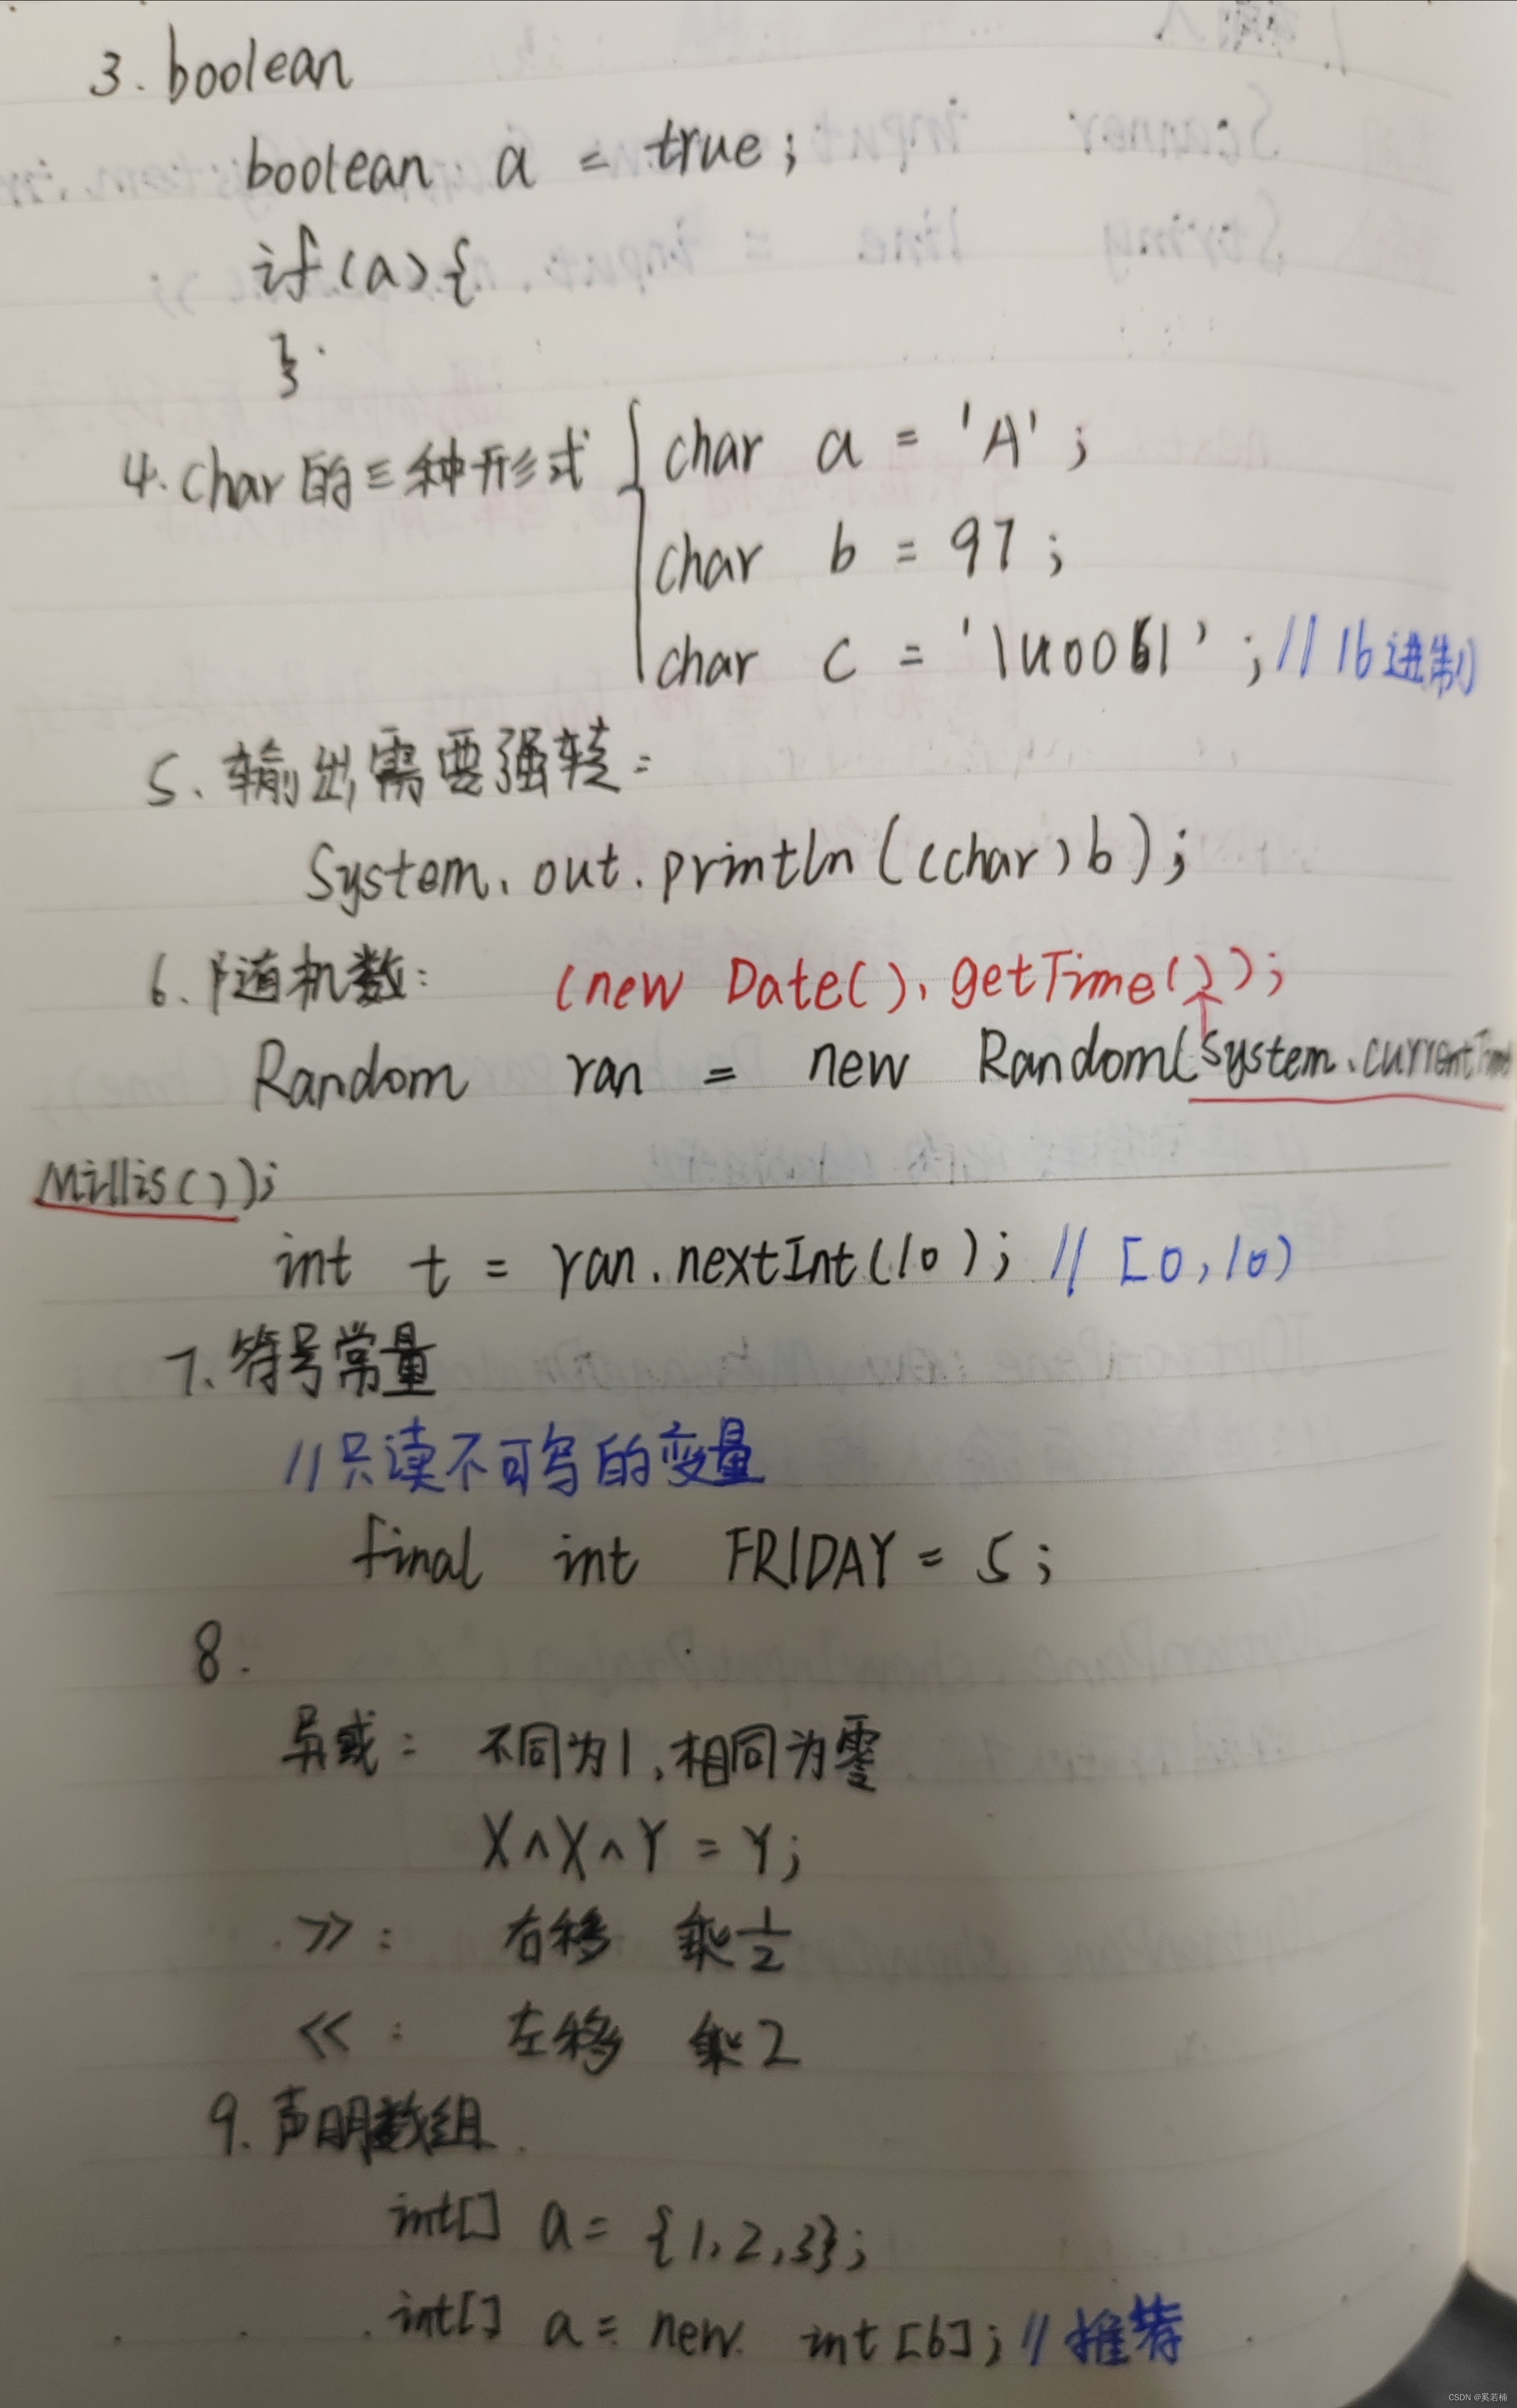 3. boolean
boolean a = true;
if(a){
}
4. char 的三种形式 { char a = 'A';
char b = 97;
char c = '\u0061'; //16进制
5. 输出需要强转:
System.out.println((char)b);
6. 随机数: (new Date().getTime());
Random ran = new Random(System.currentTime
Millis());
int t = ran.nextInt(10); // [0,10)
7. 符号常量
//只读不可写的变量
final int FRIDAY = 5;
8.
异或: 不同为1,相同为零
X^X^Y = Y;
>>: 右移 乘1/2
<<: 左移 乘2
9. 声明数组
int[] a = {1,2,3};
int[] a = new int[6]; //推荐
CSDN @奚若楠